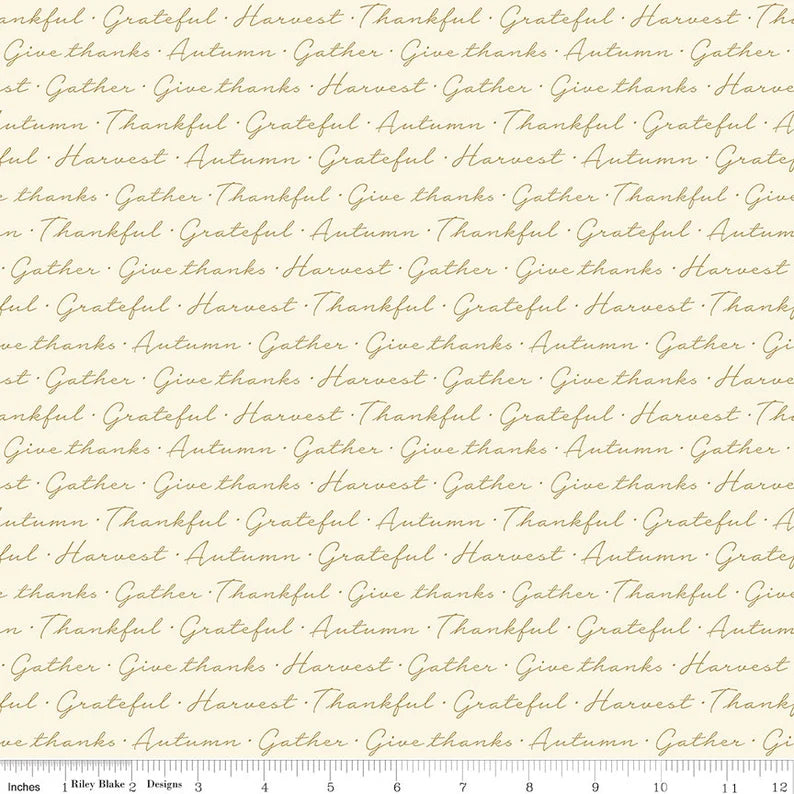 ankful · Grateful · Harvest · Thankful · Grateful · Harvest · Th
Give thanks · Autumn · Gather · Give thanks · Autumn · Gather ·
st · Gather · Give thanks · Harvest · Gather · Give thanks · Harve
utumn · Thankful · Grateful · Autumn · Thankful · Grateful · A
ful · Harvest · Autumn · Grateful · Harvest · Autumn · Gratef
e thanks · Gather · Thankful · Give thanks · Gather · Thankful · Give
n · Thankful · Grateful · Autumn · Thankful · Grateful · Autum
· Gather · Give thanks · Harvest · Gather · Give thanks · Harvest
ful · Grateful · Harvest · Thankful · Grateful · Harvest · Thankf
ve thanks · Autumn · Gather · Give thanks · Autumn · Gather · Gi
st · Gather · Give thanks · Harvest · Gather · Give thanks · Harve
ankful · Grateful · Harvest · Thankful · Grateful · Harvest · Th
Give thanks · Autumn · Gather · Give thanks · Autumn · Gather ·
st · Gather · Give thanks · Harvest · Gather · Give thanks · Harve
utumn · Thankful · Grateful · Autumn · Thankful · Grateful · A
ful · Harvest · Autumn · Grateful · Harvest · Autumn · Gratef
e thanks · Gather · Thankful · Give thanks · Gather · Thankful · Give
n · Thankful · Grateful · Autumn · Thankful · Grateful · Autum
· Gather · Give thanks · Harvest · Gather · Give thanks · Harvest
ful · Grateful · Harvest · Thankful · Grateful · Harvest · Thankf
ve thanks · Autumn · Gather · Give thanks · Autumn · Gather · Gi
Inches 1 Riley Blake 2 Designs 3 4 5 6 7 8 9 10 11 12